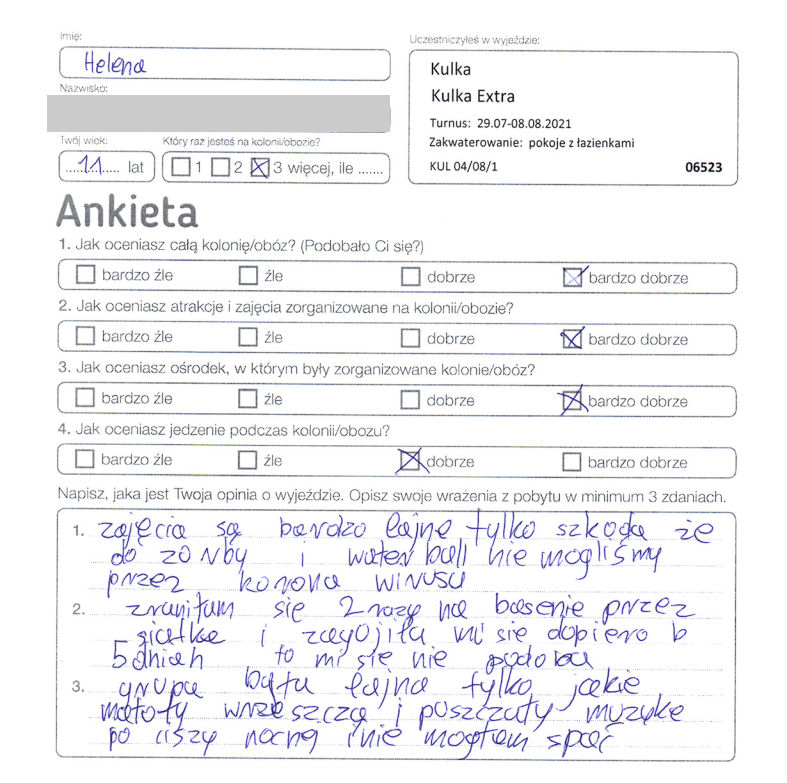 Imię:
Helena
Nazwisko:
Twój wiek:
11 lat
Który raz jesteś na kolonii/obozie?
1 2 3 więcej, ile .......
Uczestniczyłeś w wyjeździe:
Kulka
Kulka Extra
Turnus: 29.07-08.08.2021
Zakwaterowanie: pokoje z łazienkami
KUL 04/08/1 06523
Ankieta
1. Jak oceniasz całą kolonię/obóz? (Podobało Ci się?)
bardzo źle źle dobrze bardzo dobrze
2. Jak oceniasz atrakcje i zajęcia zorganizowane na kolonii/obozie?
bardzo źle źle dobrze bardzo dobrze
3. Jak oceniasz ośrodek, w którym były zorganizowane kolonie/obóz?
bardzo źle źle dobrze bardzo dobrze
4. Jak oceniasz jedzenie podczas kolonii/obozu?
bardzo źle źle dobrze bardzo dobrze
Napisz, jaka jest Twoja opinia o wyjeździe. Opisz swoje wrażenia z pobytu w minimum 3 zdaniach.
1. zajęcia są bardzo fajne tylko szkoda że
do zorby i water ball nie mogliśmy
przez korona winusa
2. zraniłam się 2 razy na basenie przez
siatkę i zagojiła mi się dopiero
5 dniach to mi się nie podoba
3. grupa była fajna tylko jakie
matoły wrzeszczą i puszczały muzykę
po ciszy nocnej i nie mogłam spać